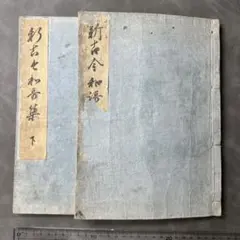 新古今和謌
新古今和哥集 下